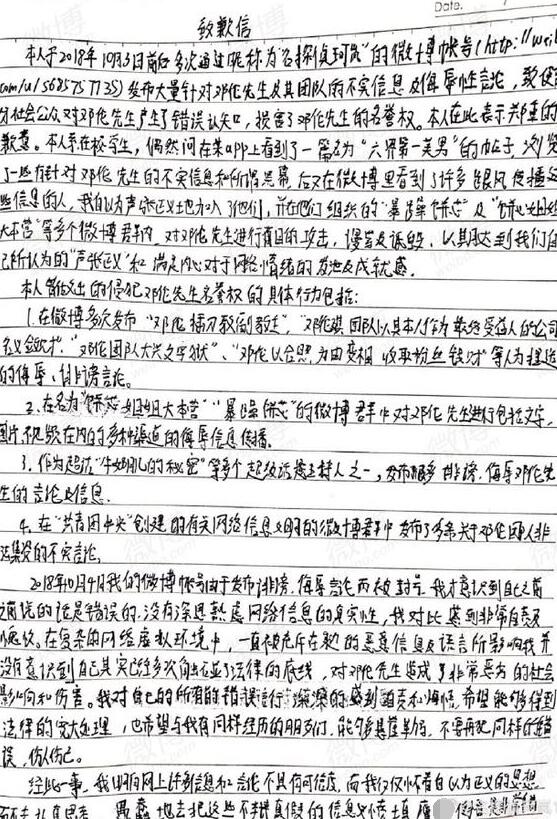 Date.
致歉信
本人于2018年10月3日前后多次通过昵称为"名探侦珂岚"的微博帐号(http://wei
com/u/5685757735)发布大量针对邓伦先生及其团队的不实信息及侮辱性言论,致使
社会公众对邓伦先生产生了错误认知,损害了邓伦先生的名誉权。本人在此表示郑重的
歉意。本人系在校学生,偶然间在某app上看到了一篇名为"六界第一美男"的帖子,浏览
了一些有针对邓伦先生的不实信息和所谓黑幕,后又在微博里看到了许多跟风传播这
些信息的人,我自以为声张正义地加入了他们,并在他们组织的"暴躁饼芯"及
大本营"等多个微博群内,对邓伦先生进行盲目的攻击,谩骂及诋毁,以其达到我们自
己所认为的"声张正义"和满足内心对于网络情绪的发泄及成就感。
本人做出的侵犯邓伦先生名誉权的具体行为包括:
1.在微博多次发布"邓伦
名义敛财"、"邓伦团队大兴文字狱"、"邓伦以合照为由变相收取粉丝钱财"等人为捏造
的侮辱、诽谤言论。
2.在名为"饼芯姐姐大本营""暴躁饼芯"的微博群中对邓伦先生进行包括文字,
图片,视频在内的多种渠道的侮辱信息传播。
3.作为超话 的秘密"等多个超级话题主持人之一,发布很多诽谤、侮辱邓伦先
生的言论及信息.
4.在"共青团中央"创建的有关网络信息文明的微博群中发布了多条关于邓伦团队非
法集资的不实言论.
2018年10月4日我的微博帐号由于发布诽谤、侮辱言论而被封号,我才意识到自己之前
所说的话是错误的,没有深思熟虑网络信息的真实性,我对此感到非常自责及
愧疚。在复杂的网络虚拟环境中,一直被充斥在耳的恶意信息及语言所影响,我并
没有意识到自己其实已经多次触碰了法律的底线,对邓伦先生造成了非常恶劣的社会
影响和伤害。我对自己的所有的错误言行,深深的感到自责和悔悟,希望能够得到
法律的宽大处理,也希望与我有同样经历的朋友们,能够悬崖勒马,不要再犯同样的错
误,伤人伤己。
经此一事,我明白网上许多信息和言论不具有可信度,而我仅仅怀着自以为正义的思想
愚蠢地去把这些不辨真假的信息